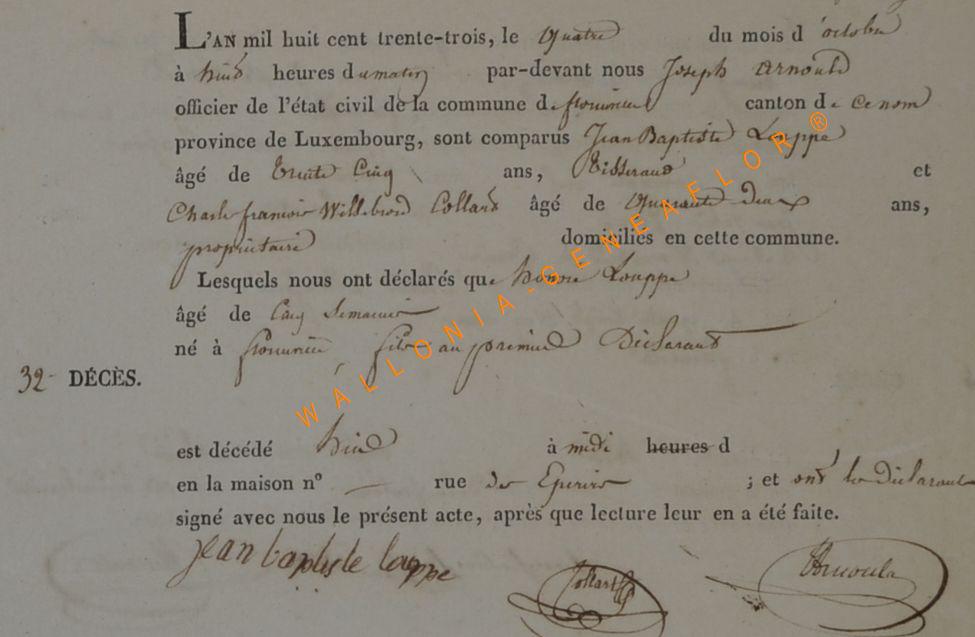 L'AN mil huit cent trente-trois, le quatre du mois d'octobre
à huit heures du matin par-devant nous Joseph Arnould
officier de l'état civil de la commune de canton de ce nom
province de Luxembourg, sont comparus Jean Baptiste Louppe
âgé de trente cinq ans, Tisserand et
Charle françois Willebrord Collard âgé de quarante deux ans,
propriétaire domiciliés en cette commune.
Lesquels nous ont déclarés que Louppe
âgé de cinq semaines
né à fils au premier Déclarant
32 DÉCÈS.
est décédé hier à midi heures d
en la maison n° — rue des ; et ont les déclarants
signé avec nous le présent acte, après que lecture leur en a été faite.
jean baptiste louppe Collard
WALLONIA-GENEAFLOR ®